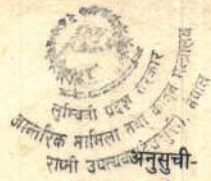 लुम्बिनी प्रदेश सरकार
आन्तरिक मामिला तथा कानून मन्त्रालय
राप्ती उपत्यका (देउखुरी), नेपाल
अनुसुची-